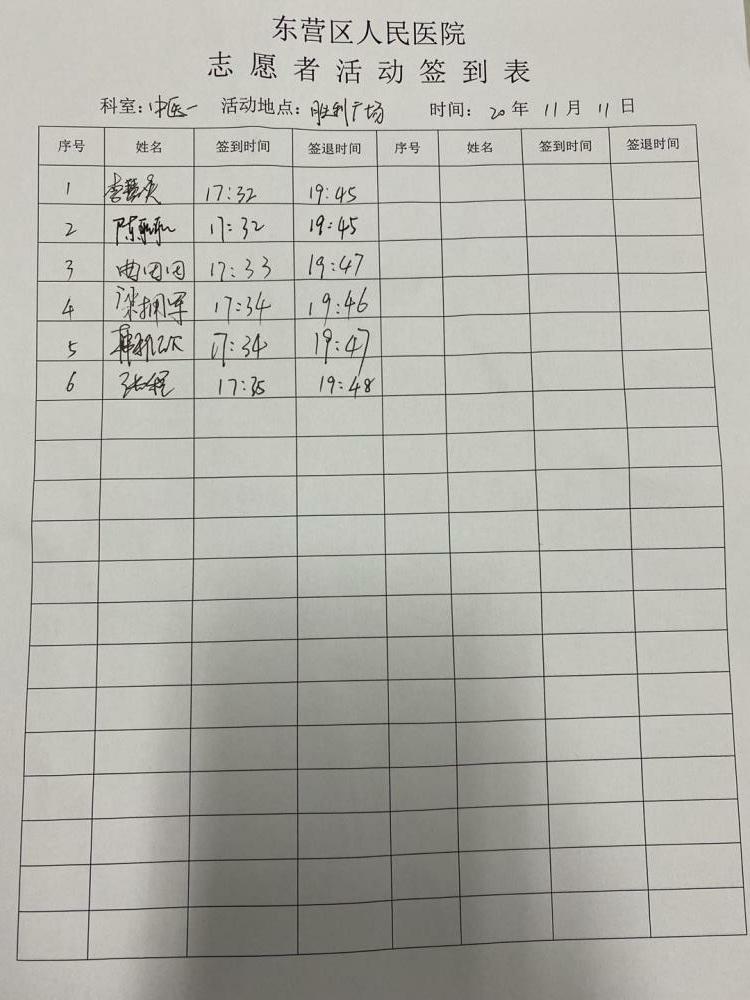 东营区人民医院
志愿者活动签到表
科室：中医一 活动地点：胜利广场 时间：20年11月11日
序号 姓名 签到时间 签退时间 序号 姓名 签到时间 签退时间
1 17:32 19:45
2 17:32 19:45
3 曲囡囡 17:33 19:47
4 梁拥军 17:34 19:46
5 17:34 19:47
6 张程 17:35 19:48